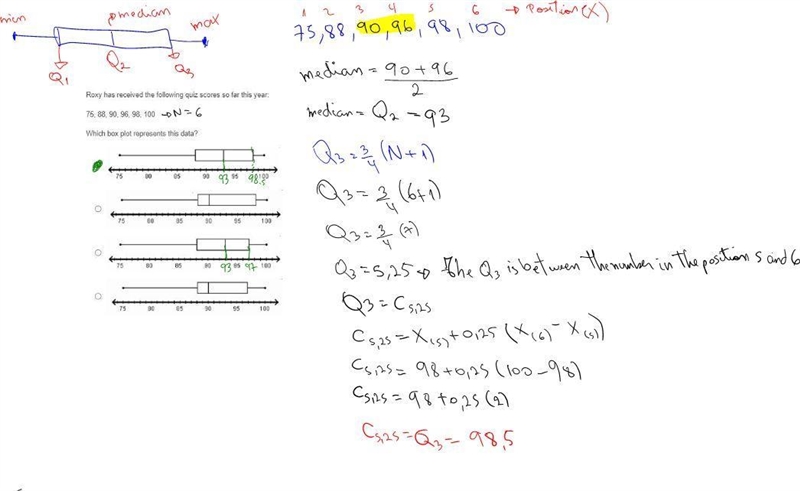 min
median
max
Q1
Q2
Q3
1 2 3 4 5 6 → Position(X)
75,88,90,96,98,100
median = 90+96
2
median = Q2 = 93
Q3 = 3/4 (N+1)
Q3 = 3/4 (6+1)
Q3 = 3/4 (7)
Q3 = 5,25 → The Q3 is between the number in the position 5 and 6
Q3 = C5,25
C5,25 = X(5) + 0,25 (X(6) - X(5))
C5,25 = 98 + 0,25 (100 - 98)
C5,25 = 98 + 0,25 (2)
C5,25 = Q3 = 98,5
Roxy has received the following quiz scores so far this year:
75, 88, 90, 96, 98, 100 → N=6
Which box plot represents this data?
75 80 85 90 95 100
93 98.5
75 80 85 90 95 100
75 80 85 90 95 100
93 97
75 80 85 90 95 100